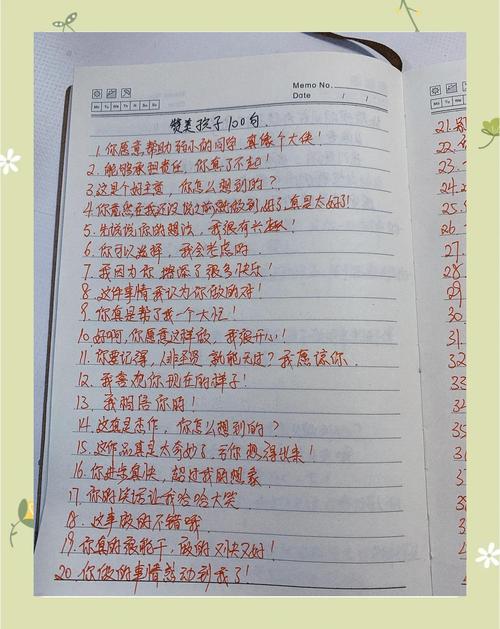 Memo No.
Date / /
Mo Tu We Th Fr Sa Su
赞美孩子100句.
1. 你愿意帮助弱小的同学 真像个大侠!
2. 能够承担责任, 你真了不起!
3. 这是个好主意, 你怎么想到的?
4. 你竟然在我还没说之前就做到好了, 真是太好了!
5. 先谈谈你的想法, 我很有兴趣!
6. 你可以选择, 我会考虑的.
7. 我因为你 增添了很多快乐!
8. 这件事情我认为你做的对!
9. 你真是帮了我一个大忙!
10. 好啊, 你愿意这样做, 我很开心!
11. 你要记得, 人非圣贤 孰能无过? 我原谅你.
12. 我喜欢你现在的样子!
13. 我相信你的!
14. 这真是杰作, 你怎么想到的?
15. 这作品真是太奇妙了, 亏你想得出来!
16. 你进步真快, 超过我的想象
17. 你的笑话让我哈哈大笑
18. 这事做的不错哦
19. 你真的很能干, 做的又快又好!
20. 你做的事情感动到我了!
21. 别
22.
23.
24.
25.
26
27.
28
29
30
31.
32
33
35
36
37
38
39
40